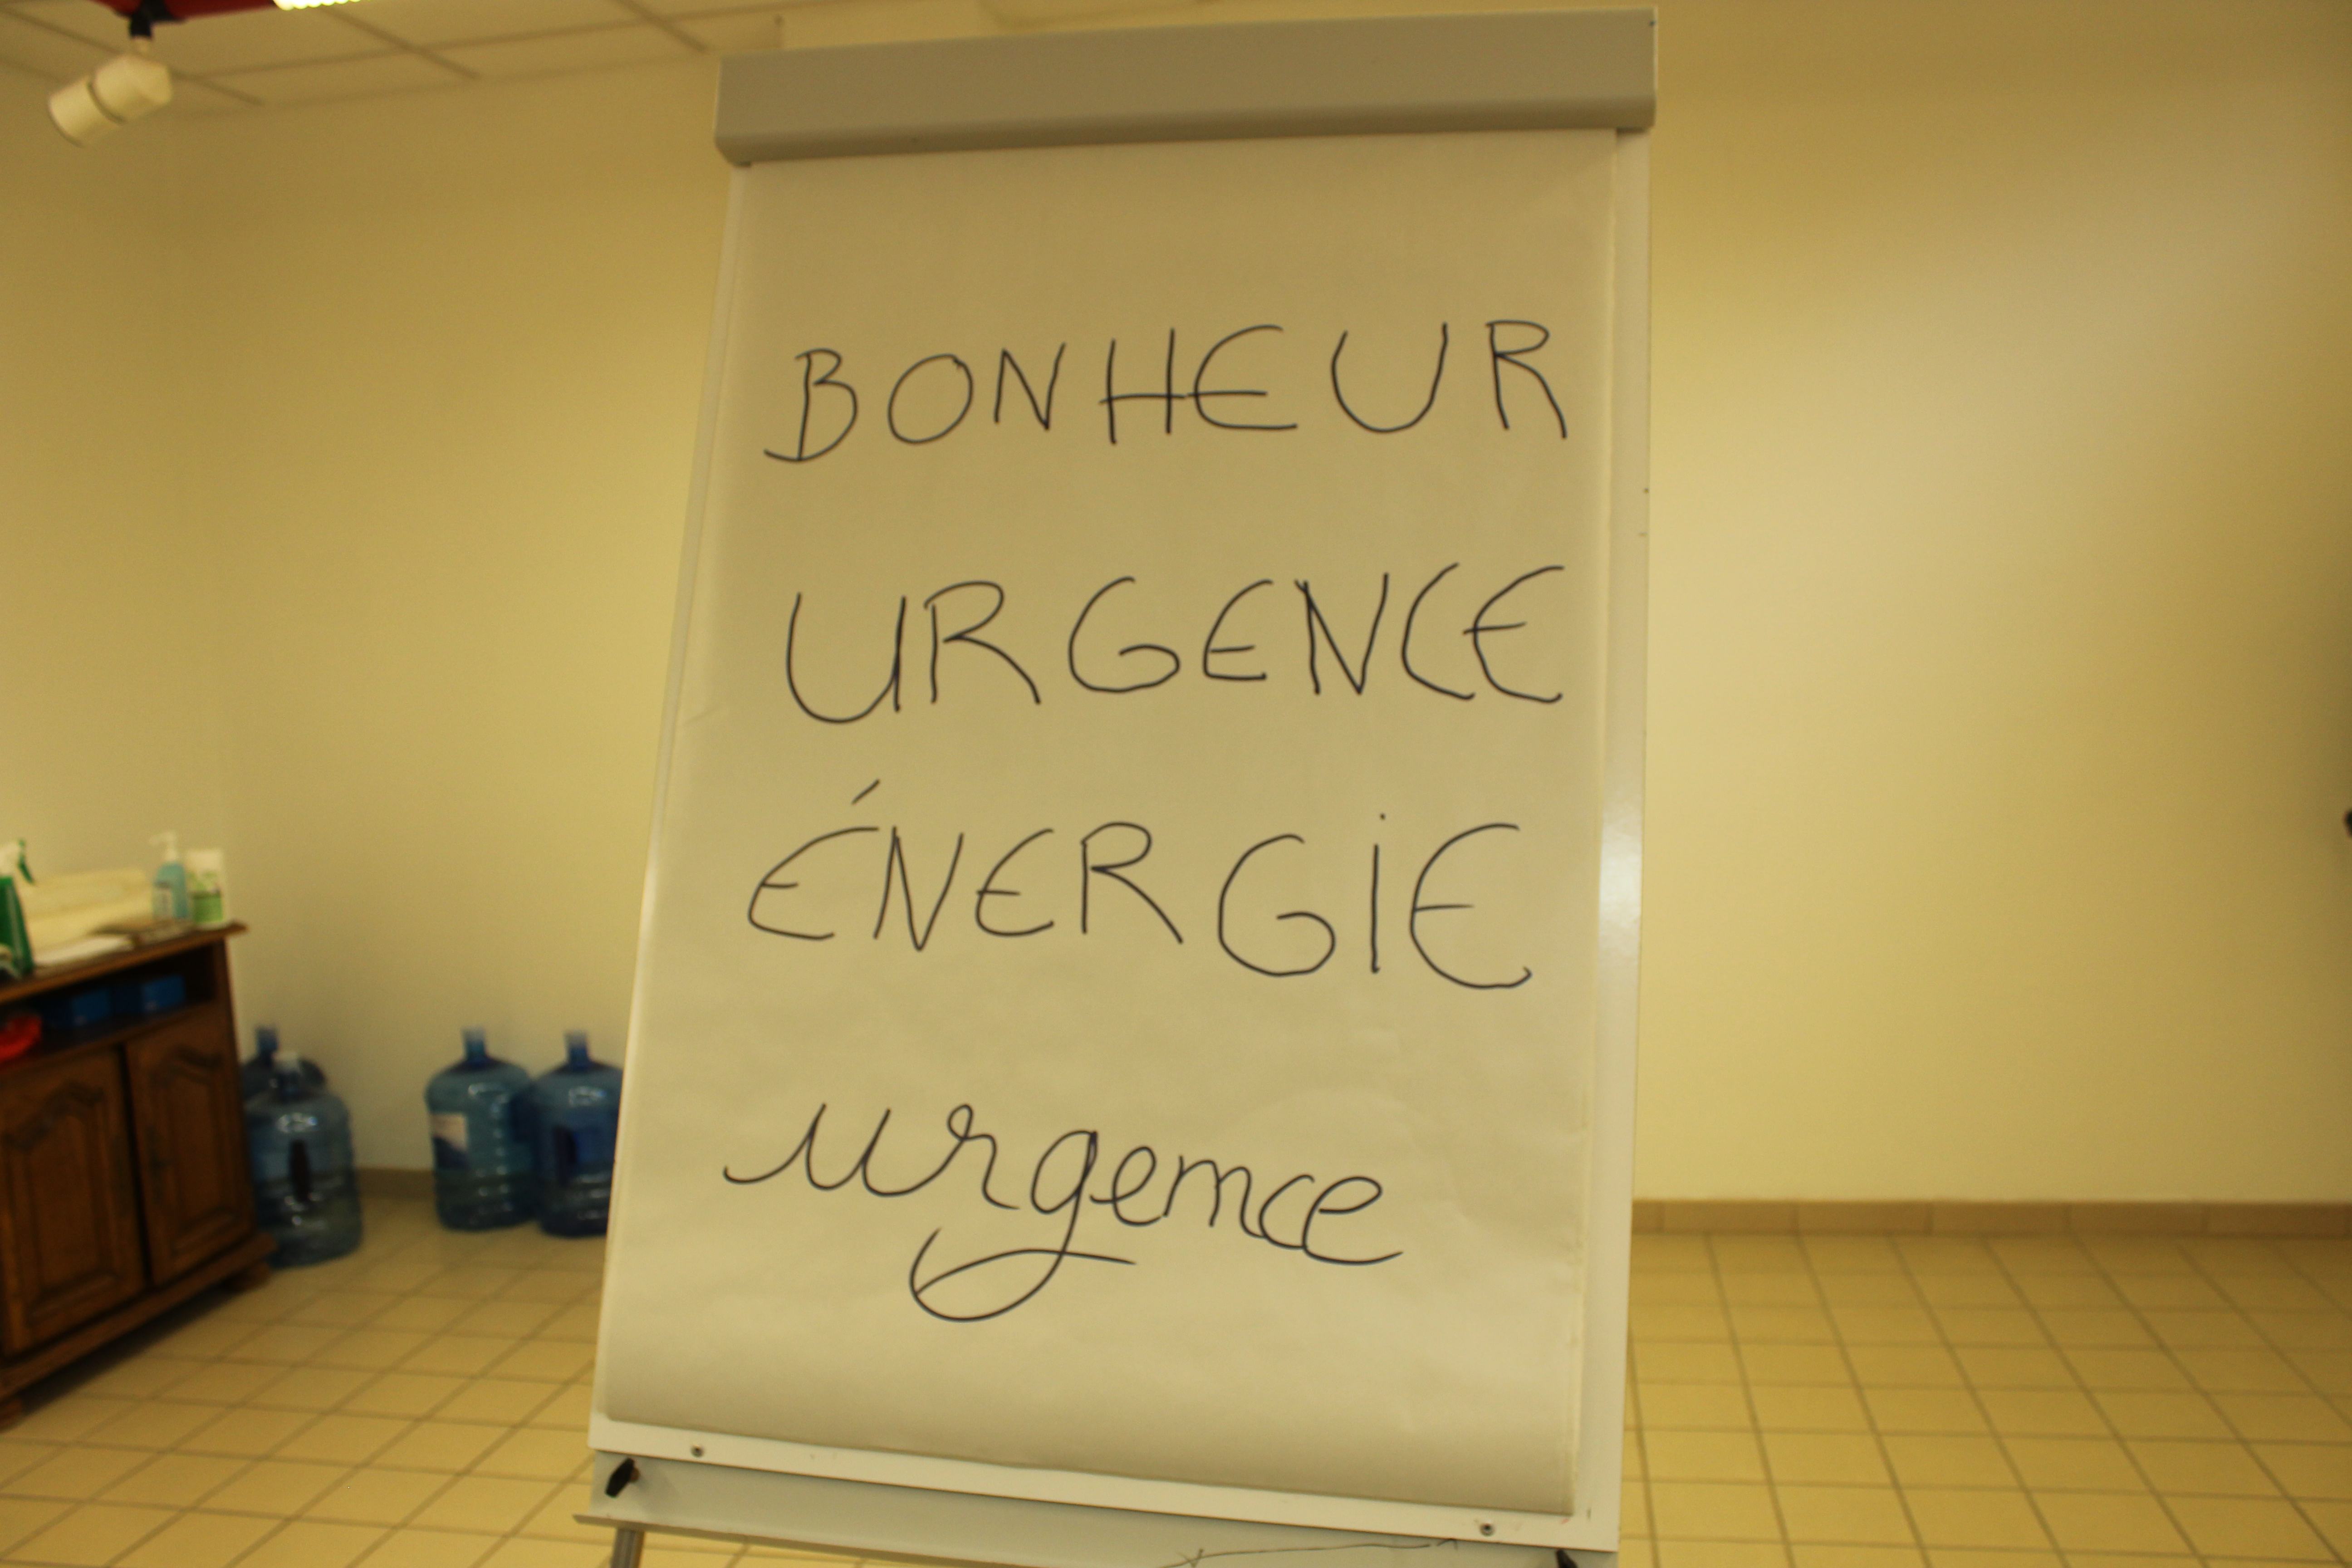 BONHEUR
URGENCE
ÉNERGIE
urgence